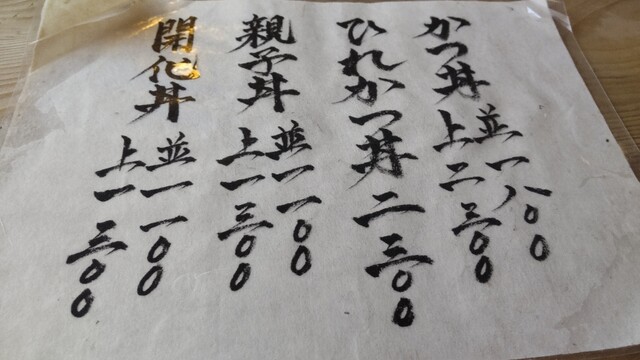 かつ丼
並一八〇〇
上二三〇〇
ひれかつ丼 二三〇〇
親子丼
並一一〇〇
上一三〇〇
開化丼
並一一〇〇
上一三〇〇